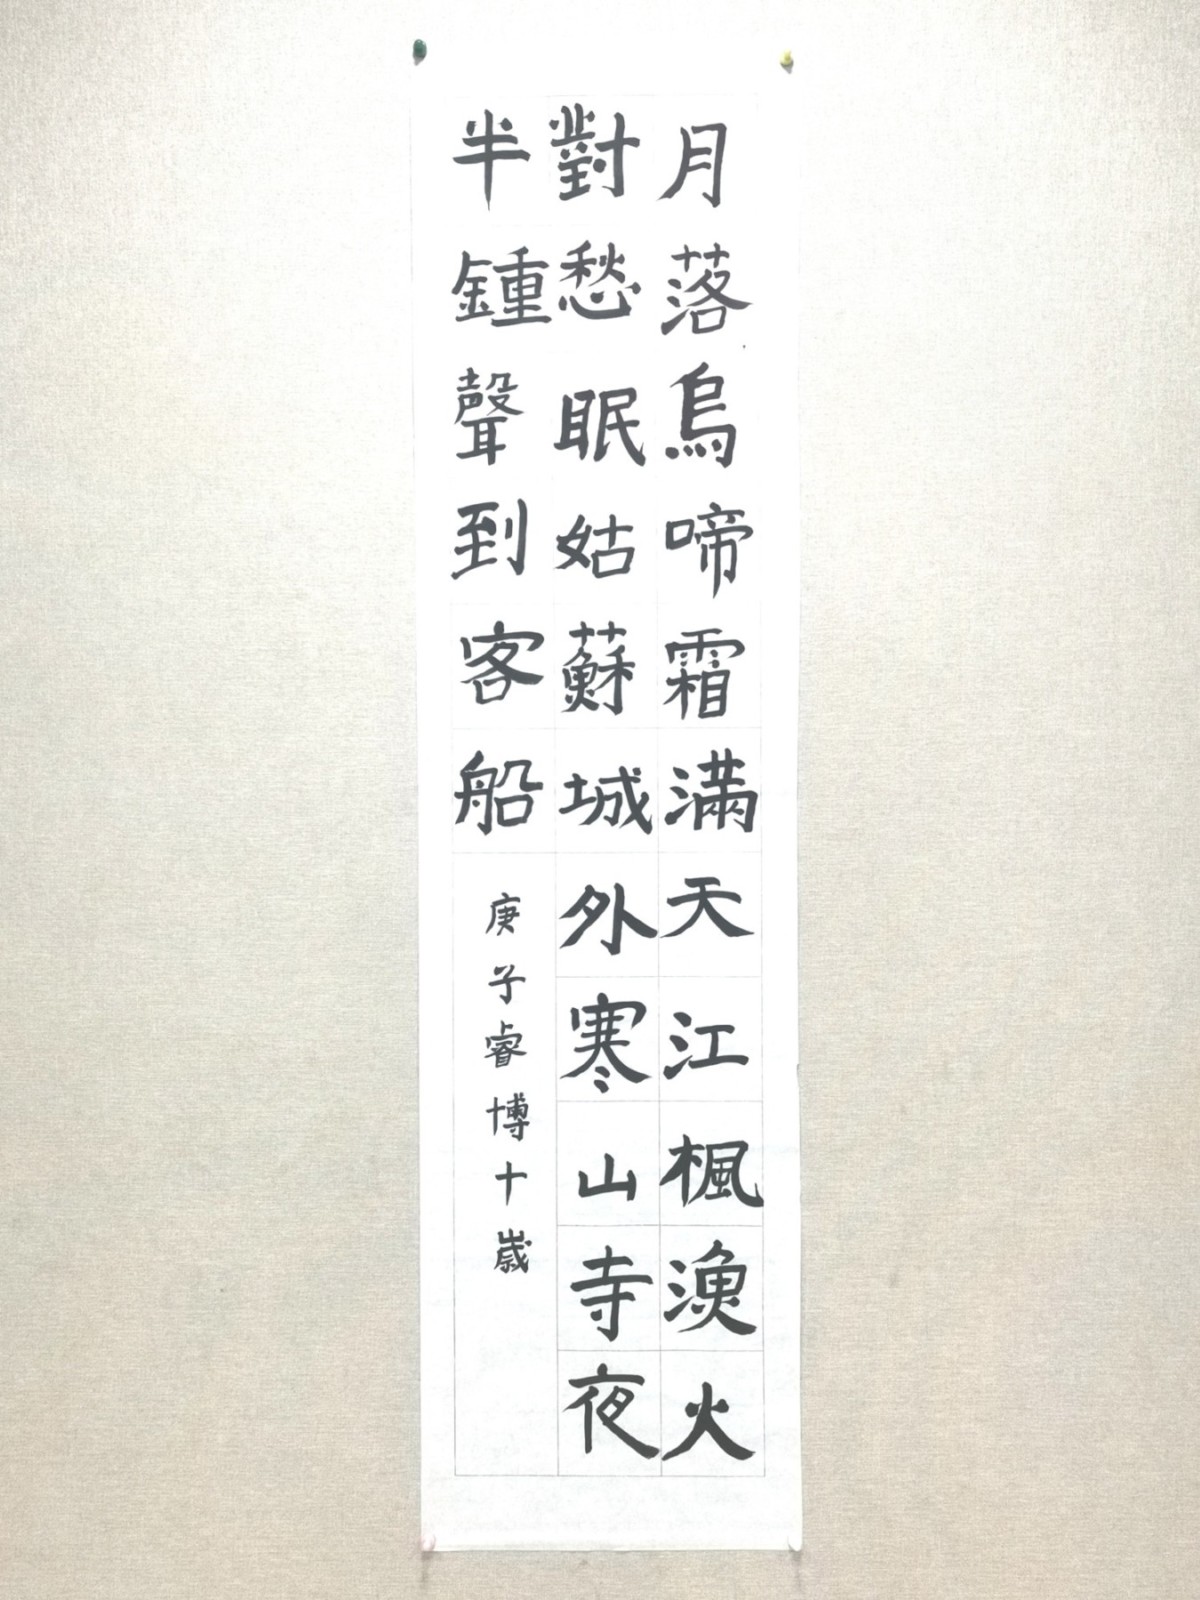 月落烏啼霜滿天江楓漁火
對愁眠姑蘇城外寒山寺夜
半鍾聲到客船
庚子睿博十歲